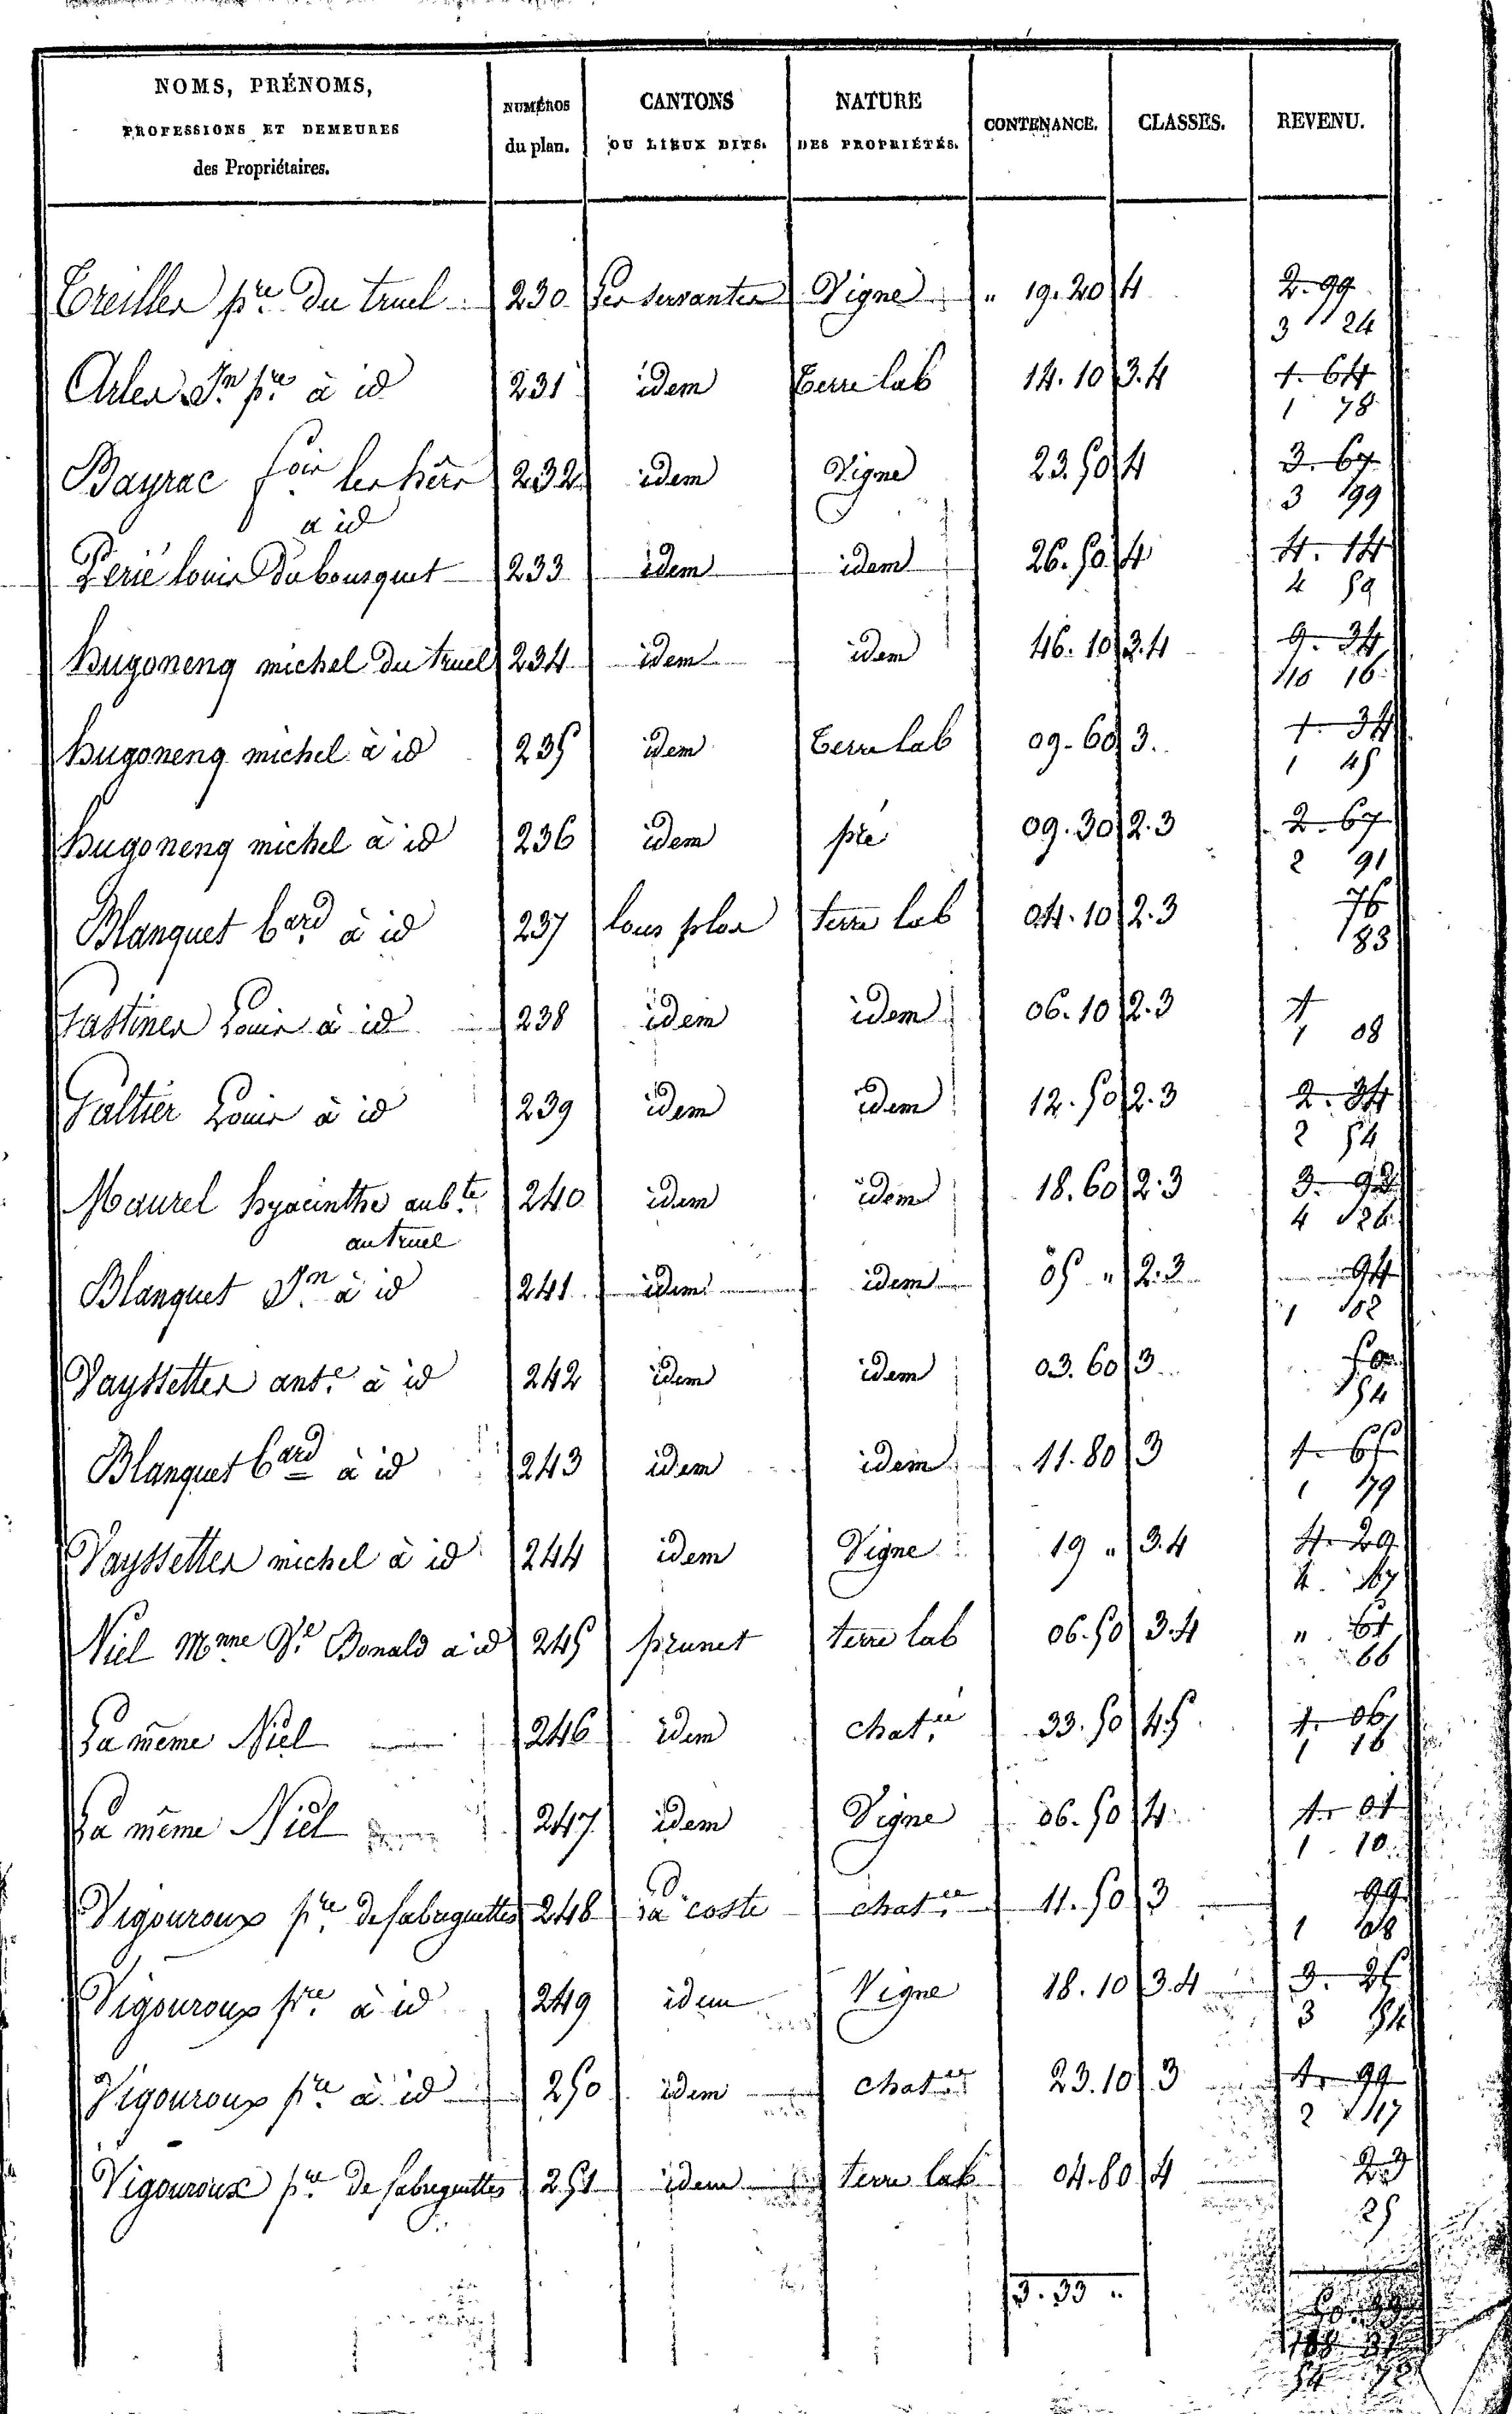 NOMS, PRÉNOMS,
PROFESSIONS ET DEMEURES
des Propriétaires.
NUMÉROS
du plan.
CANTONS
OU LIEUX DITS.
NATURE
DES PROPRIÉTÉS.
CONTENANCE.
CLASSES.
REVENU.
Treilles pre. du truel 230 les servantes Vigne " 19.20 4 2.99
3 24
Arles Jn. pre. à id 231 idem terre lab 14.10 3.4 1.64
1 78
Bayrac foix les hérs 232 idem Vigne 23.50 4 3.67
a id 3 99
Périé louis du bousquet 233 idem idem 26.50 4 4.14
4 59
hugoneng michel du truel 234 idem idem 46.10 3.4 9.34
10 16
hugoneng michel à id 235 idem terre lab 09.60 3. 1.34
1 45
hugoneng michel à id 236 idem pré 09.30 2.3 2.67
2 91
Blanquet bard. à id 237 lous plos terre lab 04.10 2.3 76
83
Gastines Louis à id 238 idem idem 06.10 2.3 1
1 08
Galtier Louis à id 239 idem idem 12.50 2.3 2.34
2 54
Maurel hyacinthe aubte. 240 idem idem 18.60 2.3 3.92
au truel 4 26
Blanquet Jn. à id 241 idem idem 05 " 2.3 94
1 02
Vayssettes ante. à id 242 idem idem 03.60 3 50
54
Blanquet bard à id 243 idem idem 11.80 3 1.65
1 79
Vayssettes michel à id 244 idem Vigne 19 " 3.4 4.29
4 67
Niel Mnne Ve. Bonald à id 245 prunet terre lab 06.50 3.4 " 61
66
La même Niel 246 idem chatée. 33.50 4.5 1.06
1 16
La même Niel 247 idem Vigne 06.50 4 1.01
1 10
Vigouroux pre. de fabreguettes 248 la coste chatée. 11.50 3 99
1 08
Vigouroux pre. à id 249 idem Vigne 18.10 3.4 3.26
3 54
Vigouroux pre. à id 250 idem chatée. 23.10 3 1.99
2 17
Vigouroux pre. de fabreguettes 251 idem terre lab 04.80 4 23
25
3.33 "
54